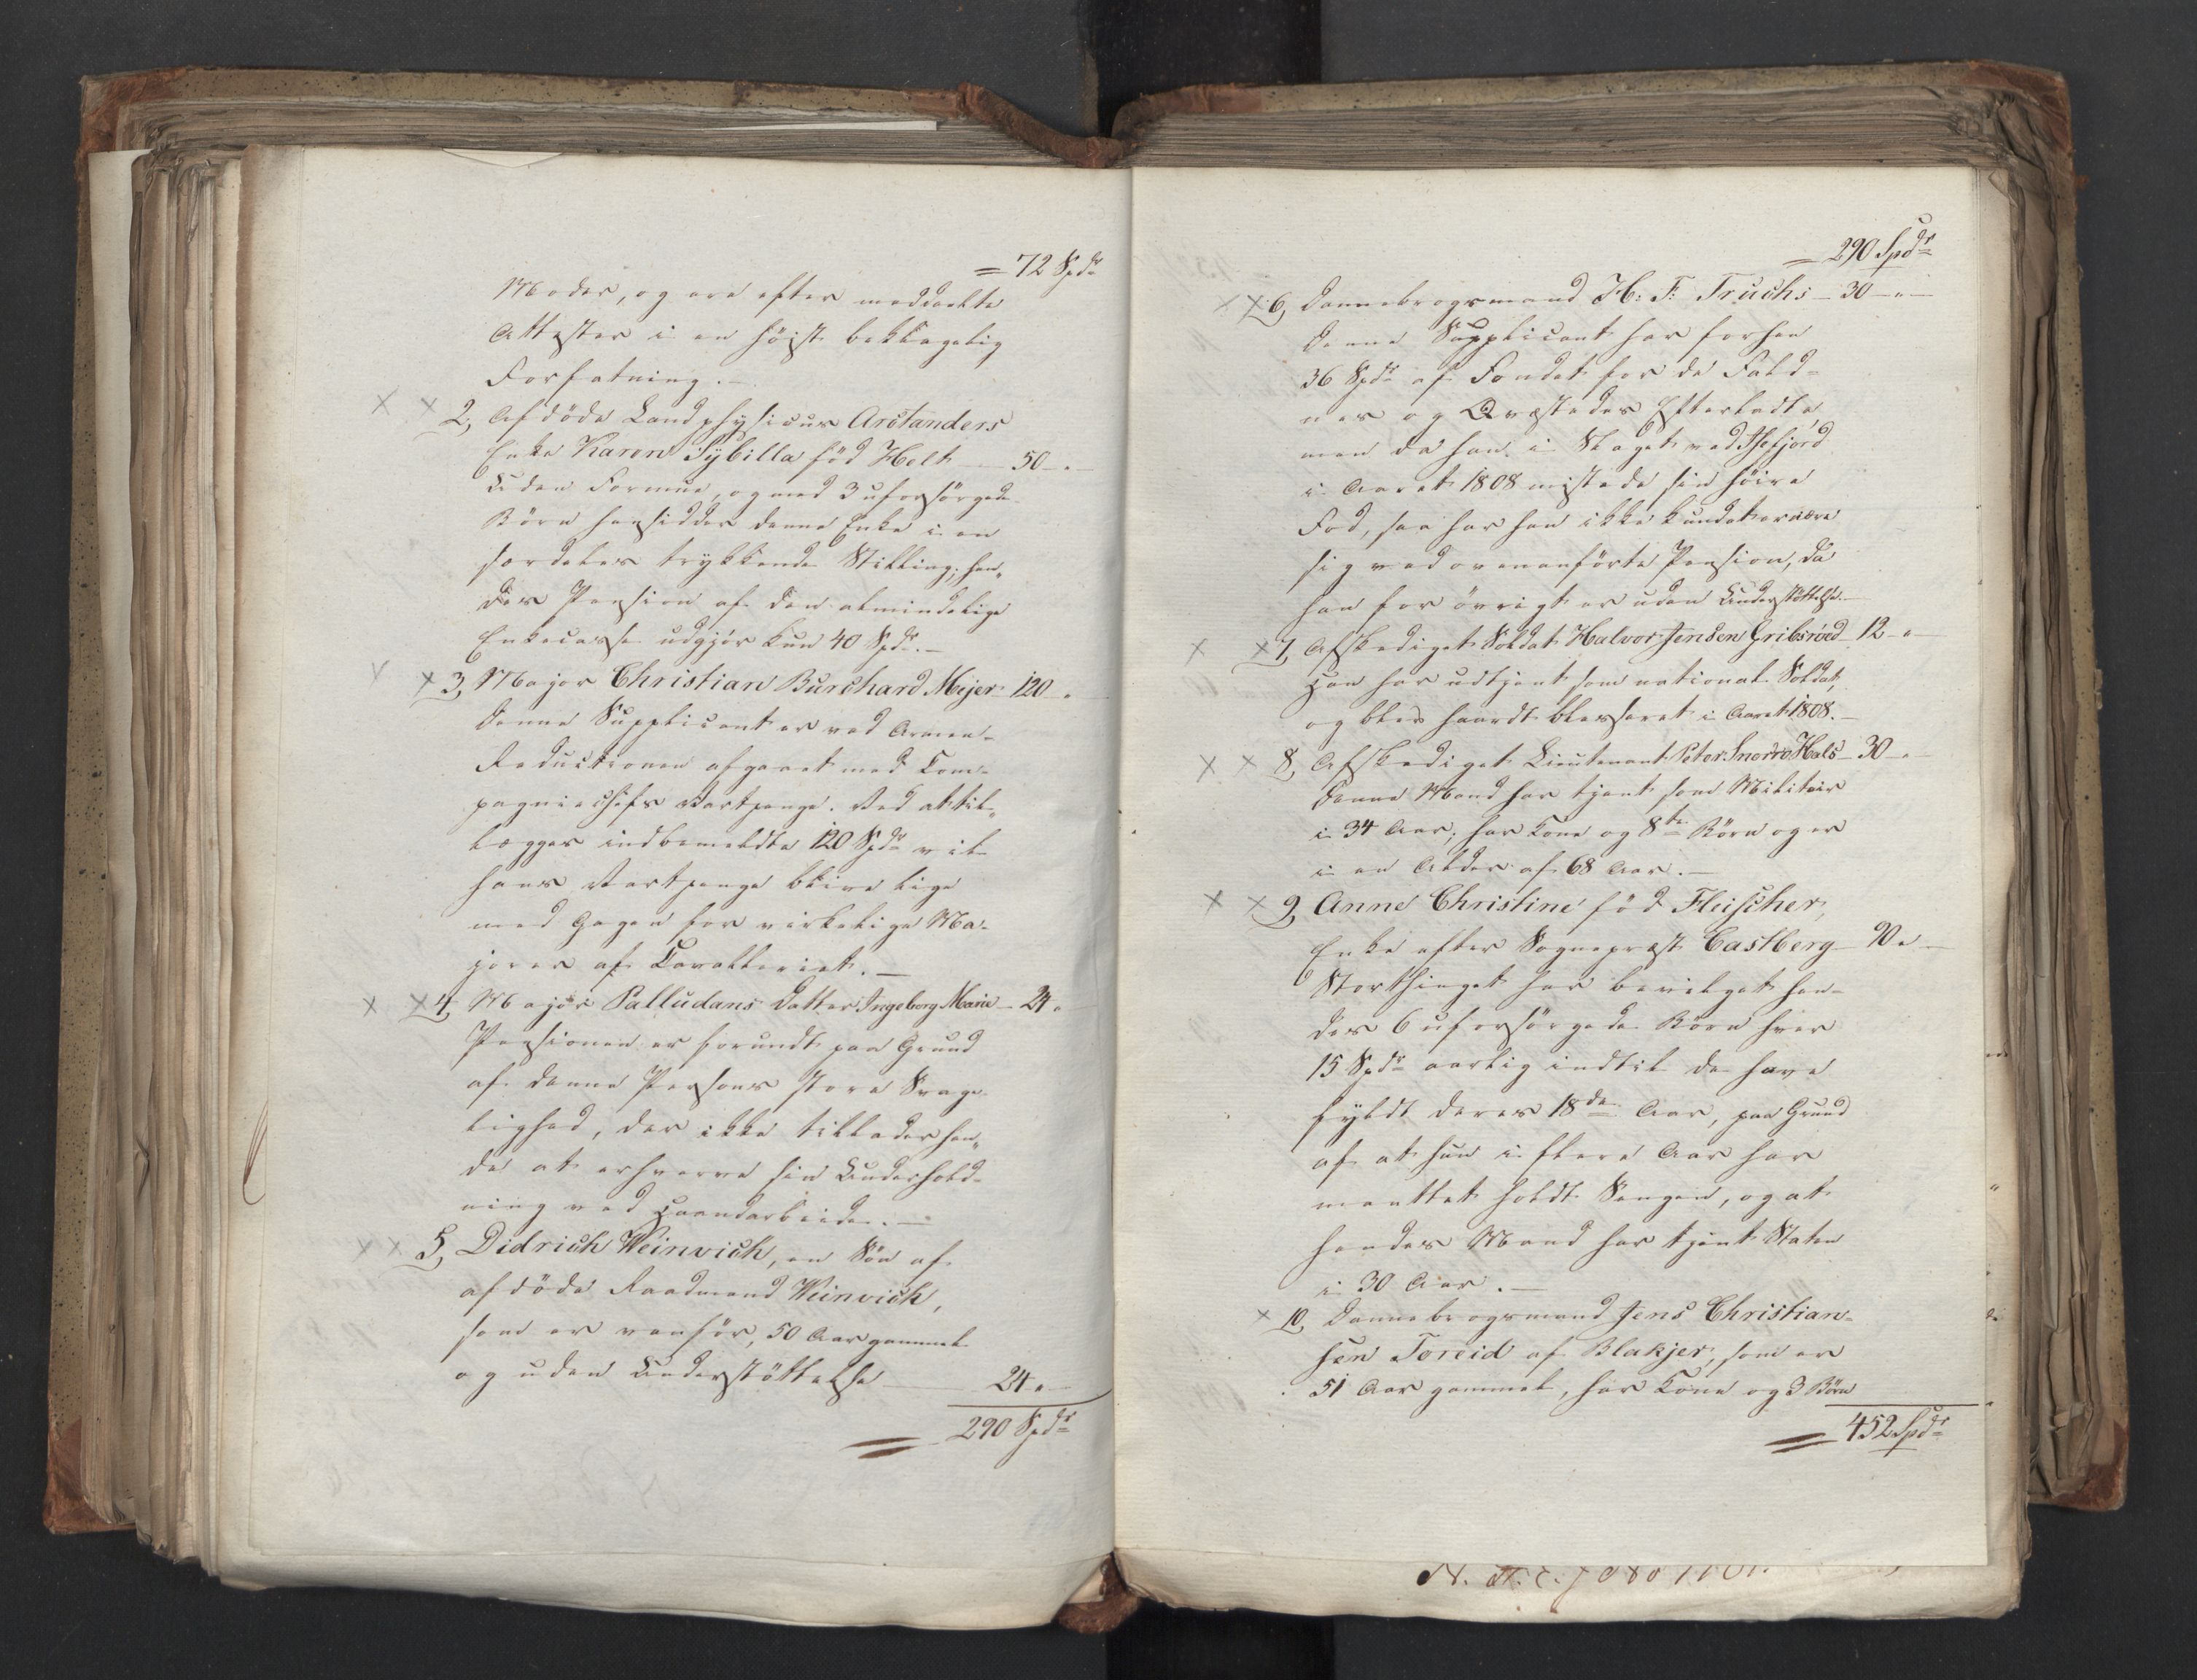 = 72 Spdr
Moder, og ere efter meddeelte
Attester i en höist beklagelig
Forfatning. –
2, Afdöde Landphysicus Arctanders
Enke Karen Sybilla föd Holt — 50 - "
Uden Formue, og med 3 uforsörgede
Börn hensidder denne Enke i en
særdeles trykkende Stilling; hen„
des Pension af den almindelige
Enkecasse udgjör kun 40 Spdr. –
3, Major Christian Burchard Mejer - 120 "
Denne Supplicant er ved Armee-
Reductionen afgaaet med Com-
pagniechefs Vartpenge. Ved at til„
lægges indbemeldte 120 Spdr vil
hans Vartpenge blive lige
med Gagen for virkelige Ma-
jorer af Cavalleriet. —
4, Major Palludans Datter Ingeborg Marie — 24 "
Pensionen er forundt paa Grund
af denne Persons store Svage-
lighed, der ikke tillader hen„
de at erhverve sin Underhold-
ning ved Haandarbeide. —
5, Didrich Weinvich, en Sön af
afdöde Raadmand Weinvich,
som er vanför, 50 Aar gammel
og uden Understöttelse — 24 "
= 290 Spdr
= 290 Spdr
6, Dannebrogsmand H: F: Truchs — 30 — "
Denne Supplicant har forhen
36 Spdr af Fondet for de Fald-
nes og Qvæstedes Efterladte
men da han i Slaget ved
i Aaret 1808 mistede sin höire
Fod, saa har han ikke kundet ernære
sig ved ovenanförte Pension, da
han for övrigt er uden Understöttelse. —
7, Afskediget Soldat Halvor Jensen Gribsröed 12 - "
Han har udtjent som national Soldat,
og blev haardt blesseret i Aaret 1808. —
8, Afskediget Lieutenant Peter Snorro Hals — 30 - "
Denne Mand har tjent som Militair
i 34 Aar; har Kone og 8te Börn og er
i en Alder af 68 Aar. —
9, Anne Christine föd Fleischer,
Enke efter Sognepræst Castberg — 90 " —
Storthinget har bevilget hen-
des 6 uforsörgede Börn hver
15 Spdr aarlig indtil de have
fyldt deres 18de Aar, paa Grund
af at hun i flere Aar har
maattet holdt Sengen, og at
hendes Mand har tjent Staten
i 30 Aar. —
10, Dannebrogsmand Jens Christian-
sen Toreid af Blakjer, som er
51 Aar gammel, har Kone og 3 Börn
= 452 Spdr